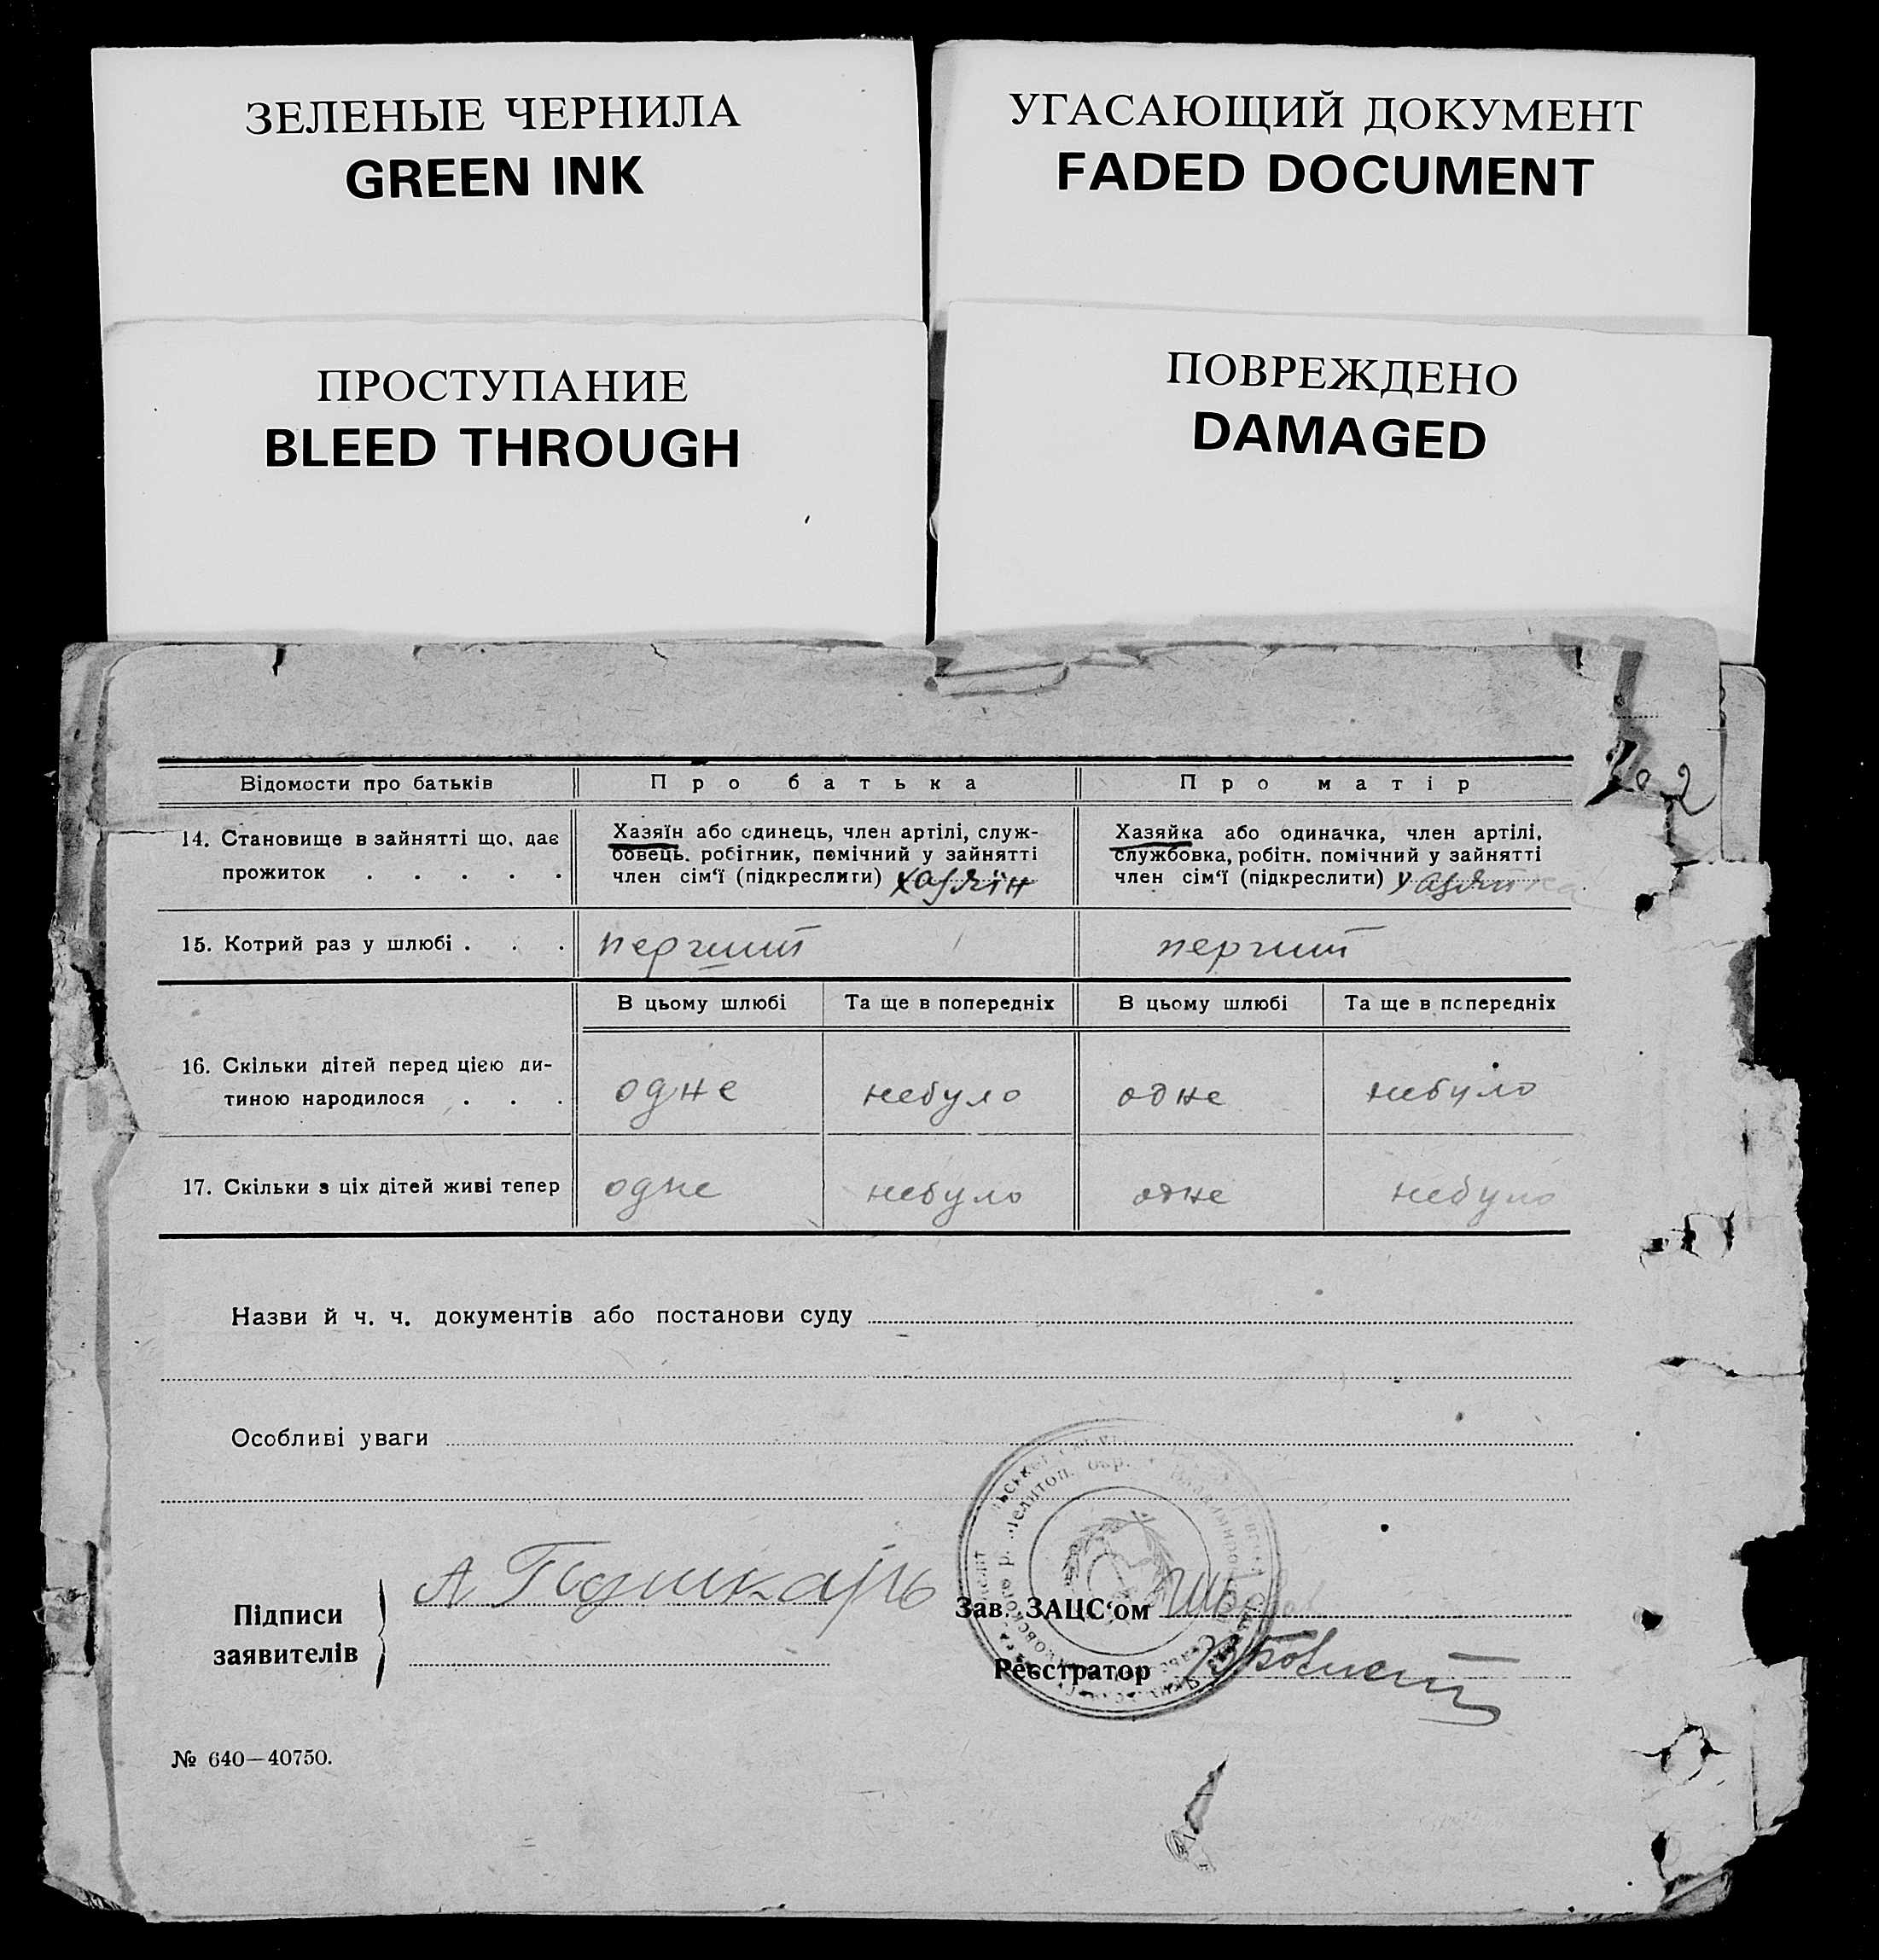 ЗЕЛЕНЫЕ ЧЕРНИЛА
GREEN INK
УГАСАЮЩИЙ ДОКУМЕНТ
FADED DOCUMENT
ПРОСТУПАНИЕ
BLEED THROUGH
ПОВРЕЖДЕНО
DAMAGED
Відомости про батьків
Про батька
Про матір
14. Становище в зайнятті що, дає
прожиток . . . . .
Хазяїн або одинець, член артілі, служ-
бовець. робітник, помічний у зайнятті
член сім‘ї (підкреслити) хазяїн
Хазяйка або одиначка, член артілі,
службовка, робітн. помічний у зайнятті
член сім‘ї (підкреслити) хазяйка
15. Котрий раз у шлюбі . . .
перший
перший
В цьому шлюбі
Та ще в попередніх
В цьому шлюбі
Та ще в попередніх
16. Скільки дітей перед цією ди-
тиною народилося . . .
одне
небуло
одне
небуло
17. Скільки з ціх дітей живі тепер
одне
небуло
одне
небуло
Назви й ч. ч. документів або постанови суду
Особливі уваги
Підписи
заявителів
А Пушкарь
Зав. ЗАЦС‘ом
Реєстратор
№ 640—40750.